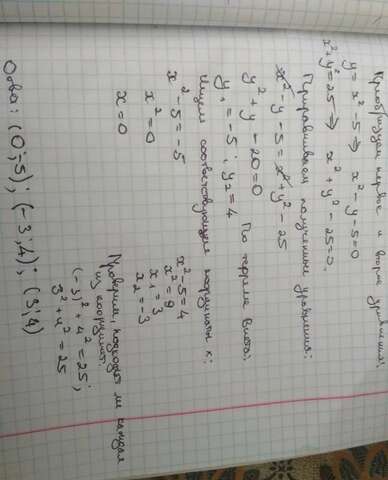 Преобразуем первое и второе уравнения:
y = x² - 5 ⇒ x² - y - 5 = 0
x² + y² = 25 ⇒ x² + y² - 25 = 0.
Приравниваем полученные уравнения:
x² - y - 5 = x² + y² - 25
y² + y - 20 = 0 По теореме Виета:
y₁ = -5 ; y₂ = 4
Ищем соответствующие координаты x:
x² - 5 = -5
x² = 0
x = 0
x² - 5 = 4
x² = 9
x₁ = 3
x₂ = -3
Проверим, подходит ли каждая
из координат:
(-3)² + 4² = 25;
3² + 4² = 25
(0; -5); (-3; 4); (3; 4)